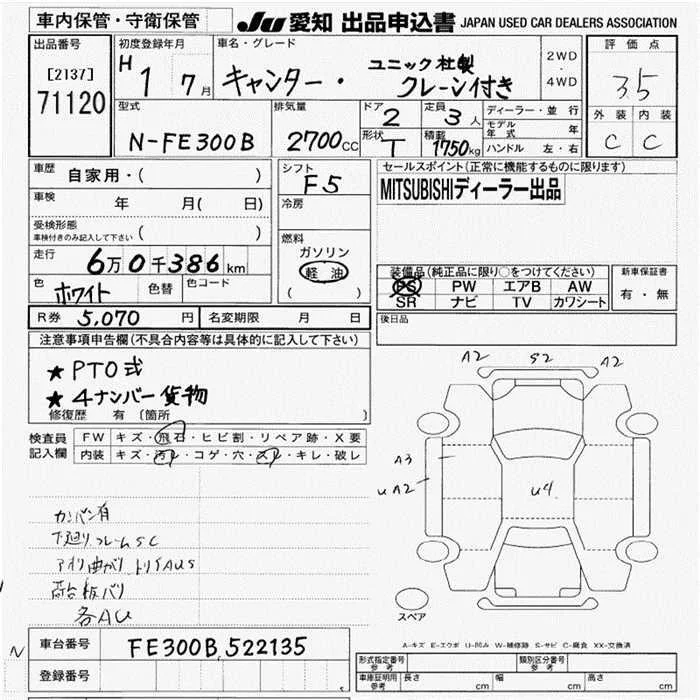 車内保管・守衛保管
JU 愛知 出品申込書 JAPAN USED CAR DEALERS ASSOCIATION
出品番号
[2137]
71120
初度登録年月
H 1 7月
車名・グレード
ユニック社製
キャンター・ クレーン付き
2WD
4WD
評価点
35
外装 内装
C C
型式
N-FE300B
排気量
2700CC
ドア
2
形状
T
定員
3人
積載
1750kg
ディーラー・並行
モデル年式 年
ハンドル 左・右
車歴 自家用・( )
車検 年 月( 日)
受検形態
車検付きのみ記入して下さい ( )
走行 6万0千386km
色 ホワイト 色替 色コード
R券 5,070円 名変期限 月 日
シフト
F5
冷房
燃料
ガソリン
軽油
( )
セールスポイント(正常に機能するものに限ります)
MITSUBISHIディーラー出品
装備品(純正品に限り○をつけてください)
PS PW エアB AW
SR ナビ TV カワシート
新車保証書
有・無
後日品
注意事項申告欄(不具合内容等は具体的に記入して下さい)
★ PTO式
★ 4ナンバー貨物
修復歴 有〔箇所 〕
検査員記入欄
FW キズ・飛石・ヒビ割・リペア跡・X要
内装 キズ・汚レ・コゲ・穴・スレ・キレ・破レ
カンバン有
下廻りフレームSC
アオリ曲がり トリイAUS
荷台板バリ
各AU
A2 S2 A2
A3
UA2
U4
スペア
A-キズ E-エクボ U-凹み W-補修跡 S-サビ C-腐食 XX-交換済
N
車台番号 FE300B 522135
登録番号
形式指定番号 参考
類別区分番号 参考
車庫証明用 参考 長さ cm 幅 cm 高さ cm